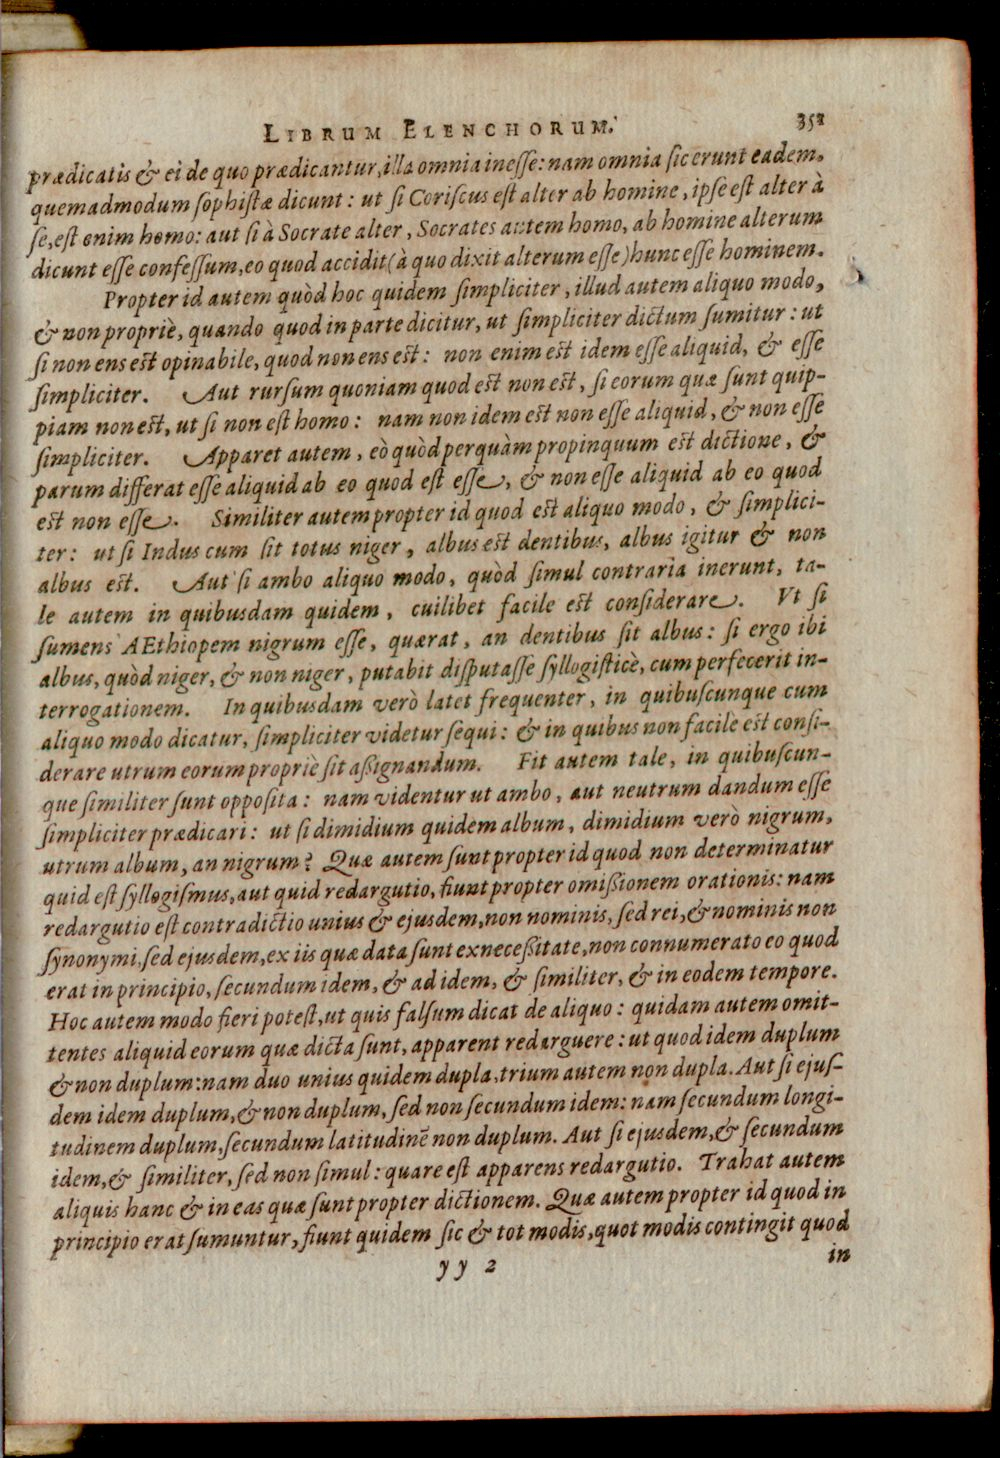 LIBRUM ELENCHORUM. 351
prædicatis & ei de quo prædicantur, illa omnia inesse: nam omnia sic erunt eadem,
quemadmodum sophistæ dicunt: ut si Coriscus est alter ab homine, ipse est alter à
se, est enim homo: aut si à Socrate alter, Socrates autem homo, ab homine alterum
dicunt esse confessum, eo quod accidit (à quo dixit alterum esse) hunc esse hominem.
Propter id autem quòd hoc quidem simpliciter, illud autem aliquo modo,
& non propriè, quando quod in parte dicitur, ut simpliciter dictum sumitur: ut
si non ens est opinabile, quod non ens est: non enim est idem esse aliquid, & esse
simpliciter. Aut rursum quoniam quod est non est, si eorum quæ sunt quip-
piam non est, ut si non est homo: nam non idem est non esse aliquid, & non esse
simpliciter. Apparet autem, eò quòd perquàm propinquum est dictione, &
parum differat esse aliquid ab eo quod est esse, & non esse aliquid ab eo quod
est non esse. Similiter autem propter id quod est aliquo modo, & simplici-
ter: ut si Indus cum sit totus niger, albus est dentibus, albus igitur & non
albus est. Aut si ambo aliquo modo, quòd simul contraria inerunt, ta-
le autem in quibusdam quidem, cuilibet facile est considerare. Vt si
sumens AEthiopem nigrum esse, quærat, an dentibus sit albus: si ergo ibi
albus, quòd niger, & non niger, putabit disputasse syllogisticè, cum perfecerit in-
terrogationem. In quibusdam verò latet frequenter, in quibuscunque cum
aliquo modo dicatur, simpliciter videtur sequi: & in quibus non facile est consi-
derare utrum eorum propriè sit assignandum. Fit autem tale, in quibuscun-
que similiter sunt opposita: nam videntur ut ambo, aut neutrum dandum esse
simpliciter prædicari: ut si dimidium quidem album, dimidium verò nigrum,
utrum album, an nigrum? Quæ autem sunt propter id quod non determinatur
quid est syllogismus, aut quid redargutio, fiunt propter omissionem orationis: nam
redargutio est contradictio unius & ejusdem, non nominis, sed rei, & nominis non
synonymi, sed ejusdem, ex iis quæ data sunt ex necessitate, non connumerato eo quod
erat in principio, secundum idem, & ad idem, & similiter, & in eodem tempore.
Hoc autem modo fieri potest, ut quis falsum dicat de aliquo: quidam autem omit-
tentes aliquid eorum quæ dicta sunt, apparent redarguere: ut quod idem duplum
& non duplum: nam duo unius quidem dupla, trium autem non dupla. Aut si ejus-
dem idem duplum, & non duplum, sed non secundum idem: nam secundum longi-
tudinem duplum, secundum latitudinē non duplum. Aut si ejusdem, & secundum
idem, & similiter, sed non simul: quare est apparens redargutio. Trahat autem
aliquis hanc & in eas quæ sunt propter dictionem. Quæ autem propter id quod in
principio erat sumuntur, fiunt quidem sic & tot modis, quot modis contingit quod
yy 2 in